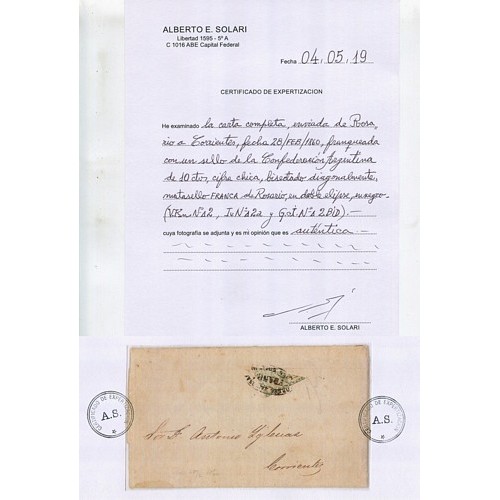 ALBERTO E. SOLARI
Libertad 1595 - 5º A
C 1016 ABE Capital Federal
Fecha 04.05.19
CERTIFICADO DE EXPERTIZACION
He examinado la carta completa, enviada de Rosa,
rio a Corrientes, fecha 28/FEB/1860, franqueada
con un sello de la Confederación Argentina
de 10 ctvs, cifra chica, bisectado diagonalmente,
matasello FRANCA de Rosario, en doble elipse, en negro
y G.J. Nº
cuya fotografía se adjunta y es mi opinión que es auténtica.-
ALBERTO E. SOLARI
CERTIFICADO DE EXPERTIZACION
A.S.
CERTIFICADO DE EXPERTIZACION
A.S.
Antonio Yglesias
Corrientes